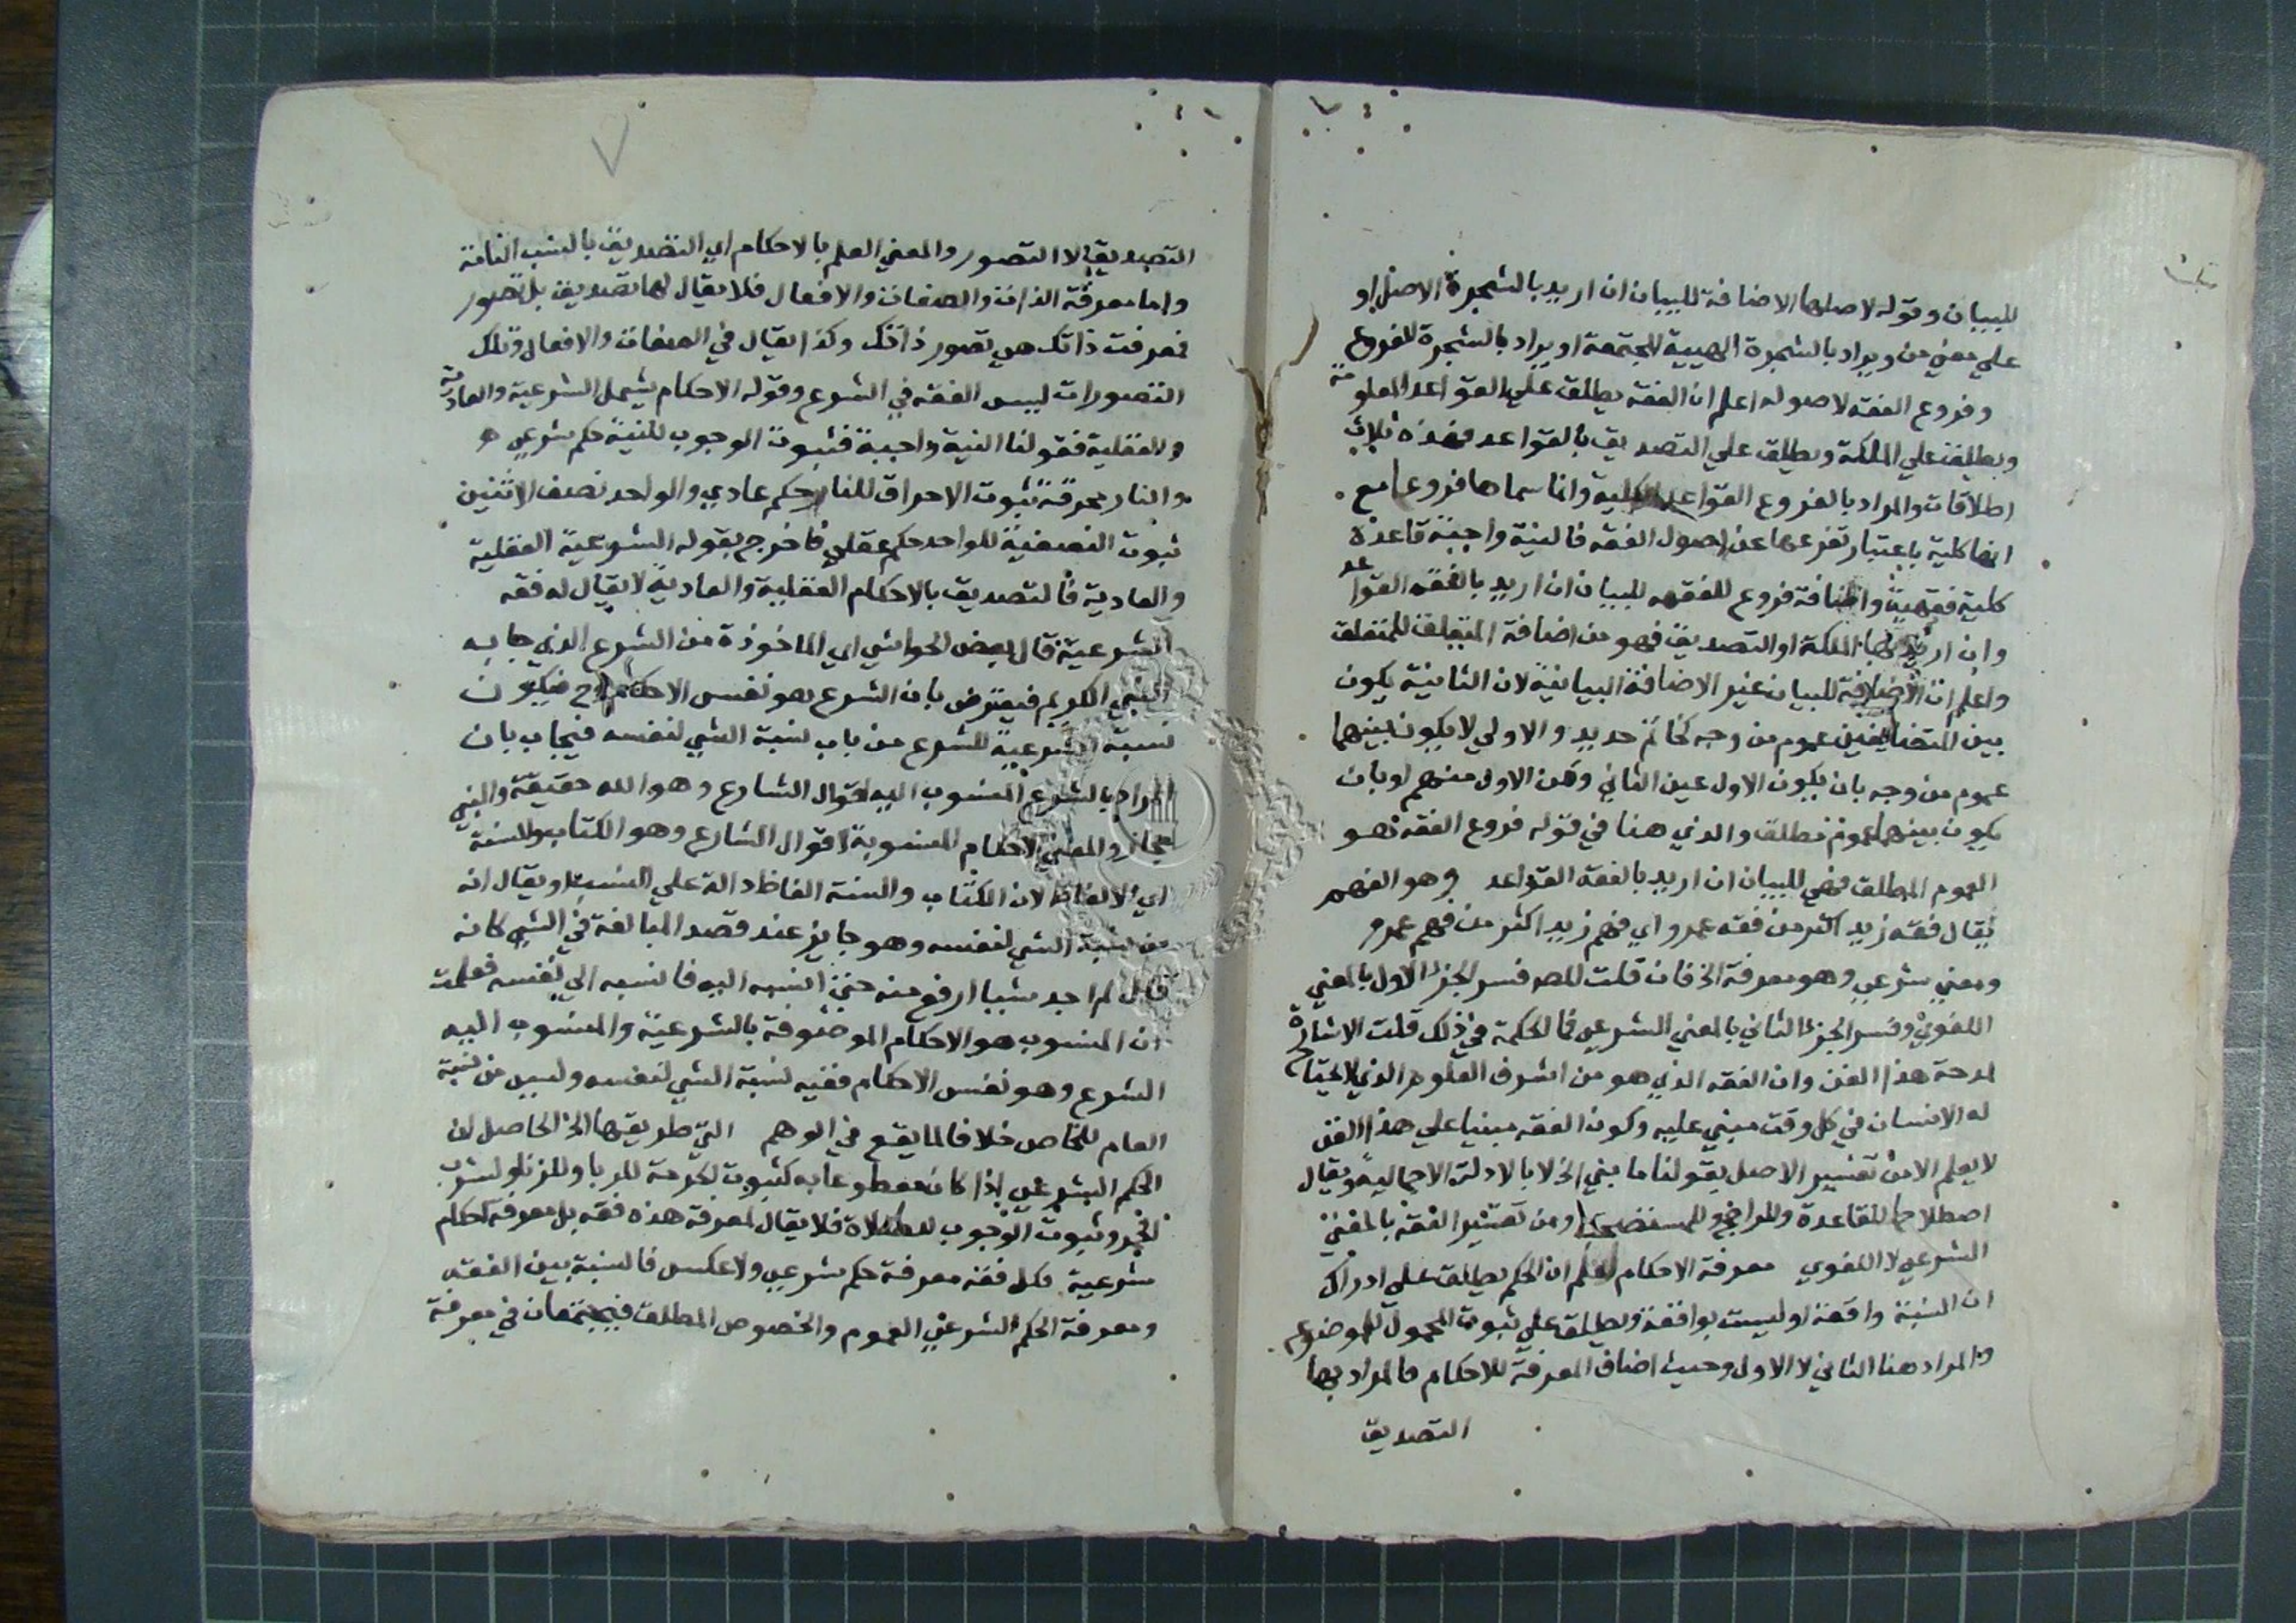 للبيان وقوله لاصلها الاضافة للبيان ان اريد بالشجرة الاصل او
علي معني من ويراد بالشجرة الهيية المجتمعة او يراد بالشجرة الفروع
وفروع الفقه لاصوله اعلم ان الفقه يطلق علي القواعد المعلومة
ويطلق علي الملكة ويطلق علي التصديق بالقواعد فهذه ثلاث
اطلاقات والمراد بالفروع القواعد الكلية وانما سماها فروعا مع
انها كلية باعتبار تفرعها عن اصول الفقه فالنية واجبة قاعدة
كلية فقهية واضافة فروع للفقه للبيان ان اريد بالفقه القواعد
وان اريد بها الملكة او التصديق فهو من اضافة المتعلق للمتعلق
واعلم ان الاضافة للبيان غير الاضافة البيانية لان الثانية يكون
بين المتضايفين عموم من وجه كخاتم حديد والاولي لا يكون بينهما
عموم من وجه بان يكون الاول عين الثاني ومن الاول منهم او بان
يكون بينهما عموم مطلق والذي هنا في قوله فروع الفقه هو
العموم المطلق فهي للبيان ان اريد بالفقه القواعد وهو الفهم
يقال فقه زيد اكثر من فقه عمرو اي فهم زيد اكثر من فهم عمرو
ومعني شرعي وهو معرفة الخ فان قلت المص فسر الجزء الاول بالمعني
اللغوي وفسر الجزء الثاني بالمعني الشرعي فما الحكمة في ذلك قلت الاشارة
لمدحة هذا الفن وان الفقه الذي هو من اشرف العلوم الذي يحتاج
له الانسان في كل وقت مبني عليه وكون الفقه مبنيا علي هذا الفن
لا يعلم الا من تفسير الاصل بقولنا ما بني الخ لا بالادلة الاجمالية ويقال
اصطلاحا للقاعدة وللراجح وللمستصحب ومن تفسير الفقه بالمعني
الشرعي لا اللغوي معرفة الاحكام اعلم ان الحكم يطلق علي ادراك
ان النسبة واقعة او ليست بواقعة ويطلق علي ثبوت المحمول للموضوع
والمراد هنا الثاني لا الاول وحيث اضاف المعرفة للاحكام فالمراد بها
التصديق
التصديق لا التصور والمعني العلم بالاحكام اي التصديق بالنسب التامة
واما معرفة الذات والصفات والافعال فلا يقال لها تصديق بل تصور
فمعرفت ذاتك هي تصور ذاتك وكذا يقال في الصفات والافعال وتلك
التصورات ليس الفقه في الشرع وقوله الاحكام يشمل الشرعية والعادية
والعقلية فقولنا النية واجبة فثبوت الوجوب للنية حكم شرعي
والنار محرقة ثبوت الاحراق للنار حكم عادي والواحد نصف الاثنين
ثبوت النصفية للواحد حكم عقلي فاخرج بقوله الشرعية العقلية
والعادية فالتصديق بالاحكام العقلية والعادية لا يقال له فقه
الشرعية قال بعض الحواشي اي الماخوذة من الشرع الذي جا به
النبي الكريم فيعترض بان الشرع هو نفس الاحكام وح فيكون
نسبة الشرعية للشرع من باب نسبة الشي لنفسه فيجاب بان
المراد بالشرع المنسوب اليه اقوال الشارع وهو الله حقيقة والنبي
مجاز والمعني الاحكام المنسوبة لاقوال الشارع وهو الكتاب والسنة
اي الالفاظ لان الكتاب والسنة الفاظ دالة علي النسب ويقال انه
من نسبة الشي لنفسه وهو جايز عند قصد المبالغة في الشي كانه
قال لم اجد شيا ارفع منه حتي انسبه اليه فانسبه الي نفسه فعلمت
ان المنسوب هو الاحكام الموصوفة بالشرعية والمنسوب اليه
الشرع وهو نفس الاحكام ففيه نسبة الشي لنفسه وليس من نسبة
العام للخاص خلافا لما يقع في الوهم التي طريقها الخ الحاصل ان
الحكم الشرعي اذا كان مقطوعا به كثبوت الحرمة للربا وللزنا ولشرب
الخمر وثبوت الوجوب للصلاة فلا يقال لمعرفة هذه فقه بل معرفة احكام
شرعية فكل فقه معرفة حكم شرعي ولا عكس فالنسبة بين الفقه
ومعرفة الحكم الشرعي العموم والخصوص المطلق فيجتمعان في معرفة